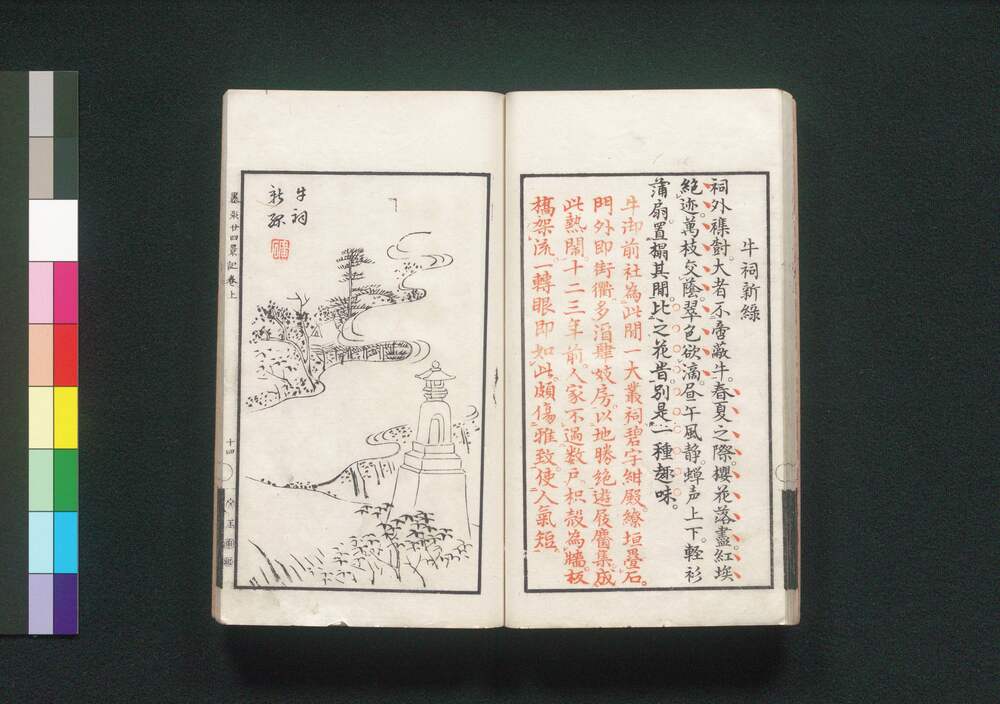 牛祠新綠
祠外襍對大者不啻蔽牛。春夏之際。櫻花落盡紅埃
絕迹。萬枝交蔭。翠色欲滴。昼午風静。蟬声上下。軽衫
蒲扇。置榻其間。比之花時別是一種趣味。
牛御前社為此間一大叢祠碧宇紺殿。繚垣疊石。
門外即街衢。多酒肆妓房。以地勝絕遊屐麕集。成
此熱閙十二三年前。人家不過数戸。枳殻為牆。板
橋架流。一轉眼即如此。頗傷雅致。使人氣短
牛祠
新綠
墨水廿四景記卷上
十四